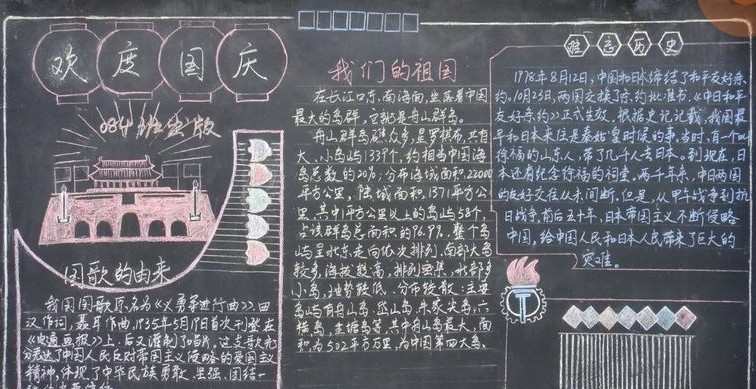 欢度国庆
084班出版
国歌的由来
我国国歌原名为《义勇军进行曲》,田
汉作词,聂耳作曲,1935年5月19日首次刊登在
《电通画报》上,后又灌制了唱片,这支歌充
分表达了中国人民反对帝国主义侵略的爱国主义
精神,体现了中华民族勇敢、坚强、团结一
我们的祖国
在长江口东,南海面,坐落着中国
最大的岛群,它就是舟山群岛。
舟山群岛礁众多,星罗棋布,共有
大、小岛屿1339个,约相当中国海
岛总数的20%,分布海域面积22000
平方公里,陆域面积1371平方公
里。其中1平方公里以上的岛屿58个,
占该群岛总面积的96.9%。整个岛
屿呈北东走向依次排列。南部大岛
较多,海拔较高,排列密集,北部多
小岛,地势较低,分布较散;主要
岛屿有舟山岛、岱山岛、朱家尖岛、六
横岛、金塘岛等,其中舟山岛最大,面
积为502平方公里,为中国第四大岛。
胜志历史
1978年8月12日,中国和日本缔结了和平友好条
约。10月23日,两国交换了条约批准书,《中日和平
友好条约》正式生效。根据史记记载,我国最
早和日本来往是秦始皇时候的事,当时,有一个叫
徐福的山东人,带了几千人去日本。到现在,日
本还有纪念徐福的祠堂。两千年来,中日两国
的友好交往从未间断,但是,从甲午战争到抗
日战争前后五十年,日本帝国主义不断侵略
中国,给中国人民和日本人民带来了巨大的
灾难。